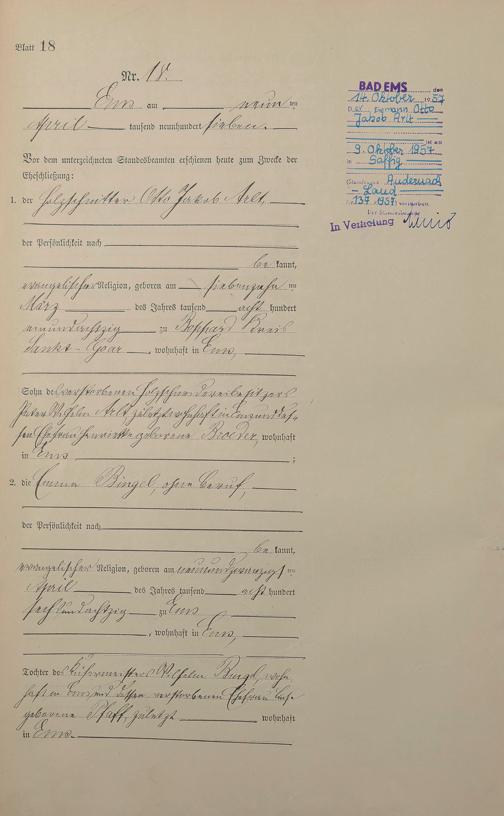 Blatt 18
Nr. 18.
Ems am neunten
April tausend neunhundert sieben.
Vor dem unterzeichneten Standesbeamten erschienen heute zum Zwecke der
Eheschließung:
1. der Holzschnitter Otto Jakob Arlt,
der Persönlichkeit nach
be kannt,
evangelischer Religion, geboren am siebenzehnten
März des Jahres tausend acht hundert
neunundachtzig zu Boppard Kreis
Sankt-Goar, wohnhaft in Ems,
Sohn des verstorbenen Holzschneidereibesitzers
Peter Wilhelm Arlt zuletzt wohnhaft in Ems und des-
sen Ehefrau Henriette geborene Broeder, wohnhaft
in Ems ;
2. die Emma Bingel, ohne Beruf,
der Persönlichkeit nach
be kannt,
evangelischer Religion, geboren am neunundzwanzigsten
April des Jahres tausend acht hundert
sechsundachtzig zu Ems
, wohnhaft in Ems,
Tochter des Wilhelm Bingel, wohn-
haft in Ems und dessen verstorbenen Ehefrau
geborene Pfaff, zuletzt wohnhaft
in Ems.
BAD EMS, den
14. Oktober 1957
Der Ehemann Otto
Jakob Arlt
ist am
9. Oktober 1957
in Saffig
(Standesamt Andernach
- Land
Nr. 137/1957) verstorben.
Der Standesbeamte
In Vertretung